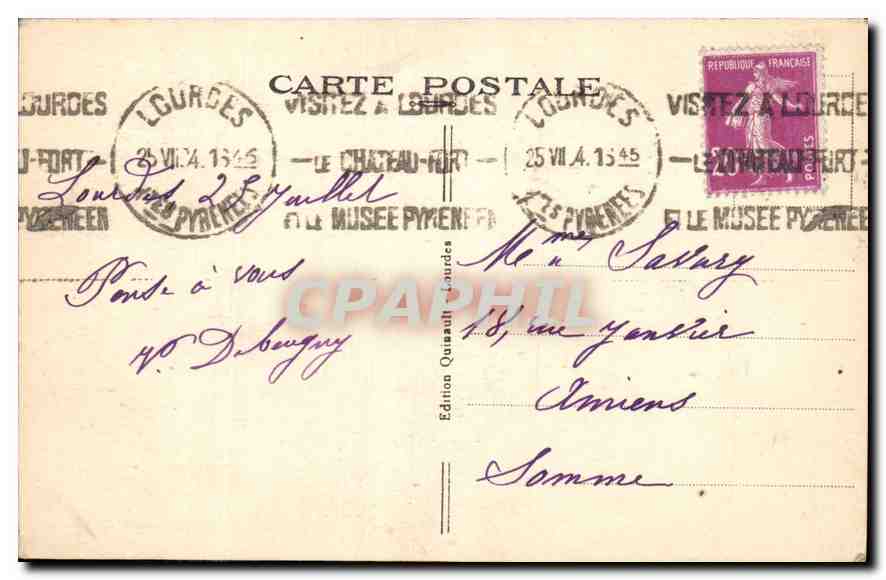 CARTE POSTALE
REPUBLIQUE FRANÇAISE
20c
POSTES
LOURDES
25 VII 34 1645
Htes PYRENEES
VISITEZ A LOURDES
LE CHATEAU-FORT
ET LE MUSEE PYRENEEN
LOURDES
25 VII 34 1645
Htes PYRENEES
VISITEZ A LOURDES
LE CHATEAU-FORT
ET LE MUSEE PYRENEEN
LOURDES
U-FORT
PYRENEEN
Lourdes 25 Juillet
Pense à vous
Debeugny
Edition Quinault - Lourdes
Savary
18, rue Janvier
Amiens
Somme
CPAPHIL